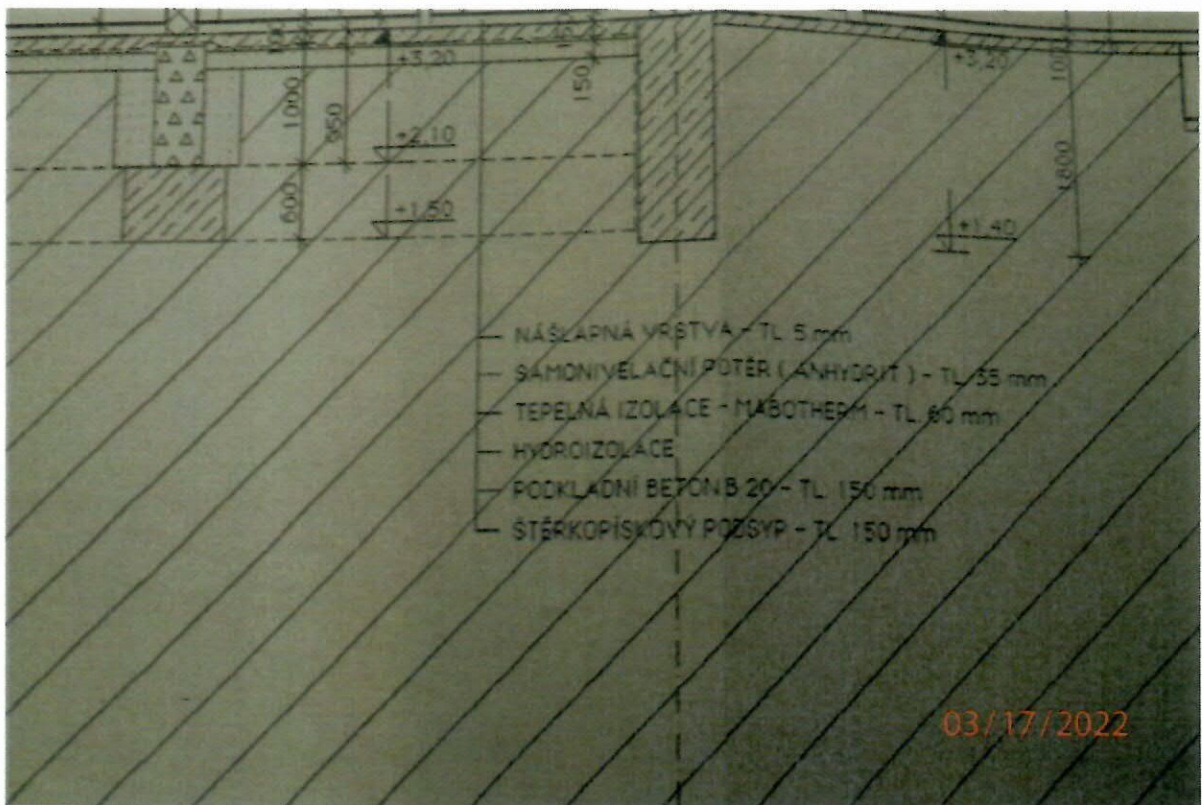 +3,20
+3,20
1000
950
150
100
+2,10
1800
600
+1,50
+1,40
NÁŠLAPNÁ VRSTVA - TL. 5 mm
SAMONIVELAČNÍ POTĚR ( ANHYDRIT ) - TL. 55 mm
TEPELNÁ IZOLACE - MABOTHERM - TL. 60 mm
HYDROIZOLACE
PODKLADNÍ BETON B 20 - TL. 150 mm
ŠTĚRKOPÍSKOVÝ PODSYP - TL. 150 mm
03/17/2022